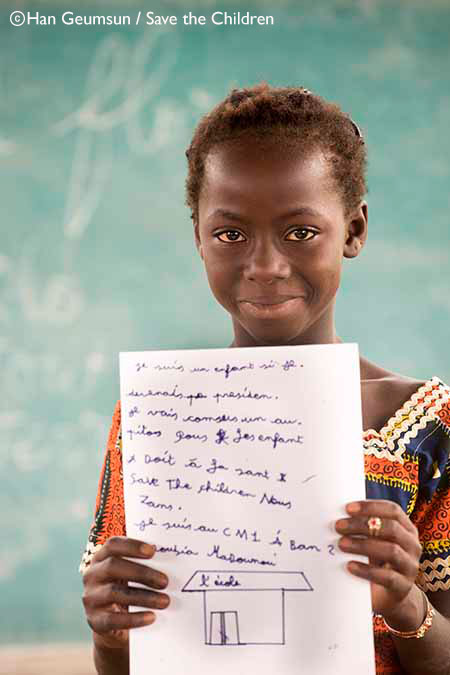 ©Han Geumsun / Save the Children
je suis un enfant si je.
devenais pe presiden.
je vais consuis un au.
pitos pous les enfant
A Doit à la sant
Save The children Nous
Zans.
je suis au CM1 A Ban 2
Madounoi
l'école